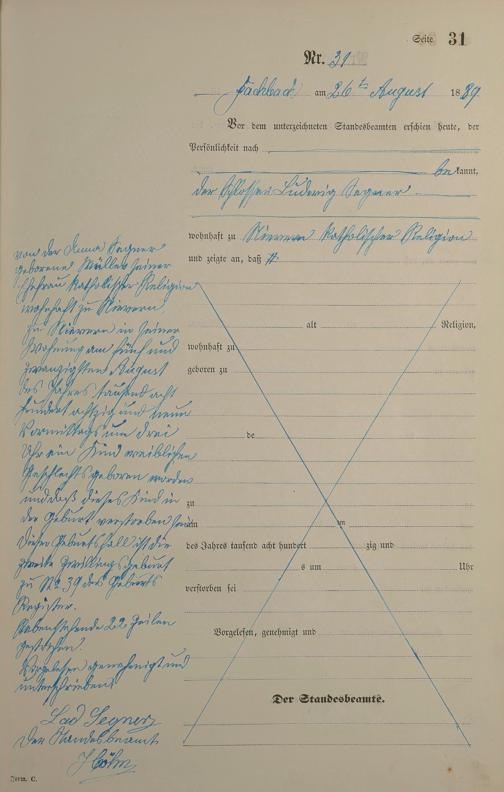 Seite 31
Nr. 31
Fachbach am 26ten August 1889
Vor dem unterzeichneten Standesbeamten erschien heute, der
Persönlichkeit nach
bekannt,
der Schlosser Ludwig Segner
wohnhaft zu Nievern katholischer Religion
und zeigte an, daß #
von der Anna Segner
geborene Müller seiner
Ehefrau katholischer Religion
wohnhaft zu Nievern
zu Nievern in seiner
Wohnung am fünf und
zwanzigsten August
des Jahres tausend acht
hundert achtzig und neun
Vormittags um drei
Uhr ein Kind weiblichen
Geschlechts geboren worden
und daß dieses Kind in
der Geburt verstorben sei
Dieser Geburtsfall ist die
zweite Zwillingsgeburt
zu No 39 des Geburts
Register.
Nebenstehende 22 Zeilen
gestrichen.
Vorgelesen genehmigt und
unterschrieben
Lud Segner
Der Standesbeamte
alt Religion,
wohnhaft zu
geboren zu
de
zu
am um
des Jahres tausend acht hundert zig und
s um Uhr
verstorben sei
Vorgelesen, genehmigt und
Der Standesbeamte.
Form. C.